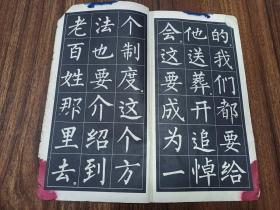 的，我们都要给
他送葬，开追悼
会。这要成为一
个制度。这个方
法也要介绍到
老百姓那里去。